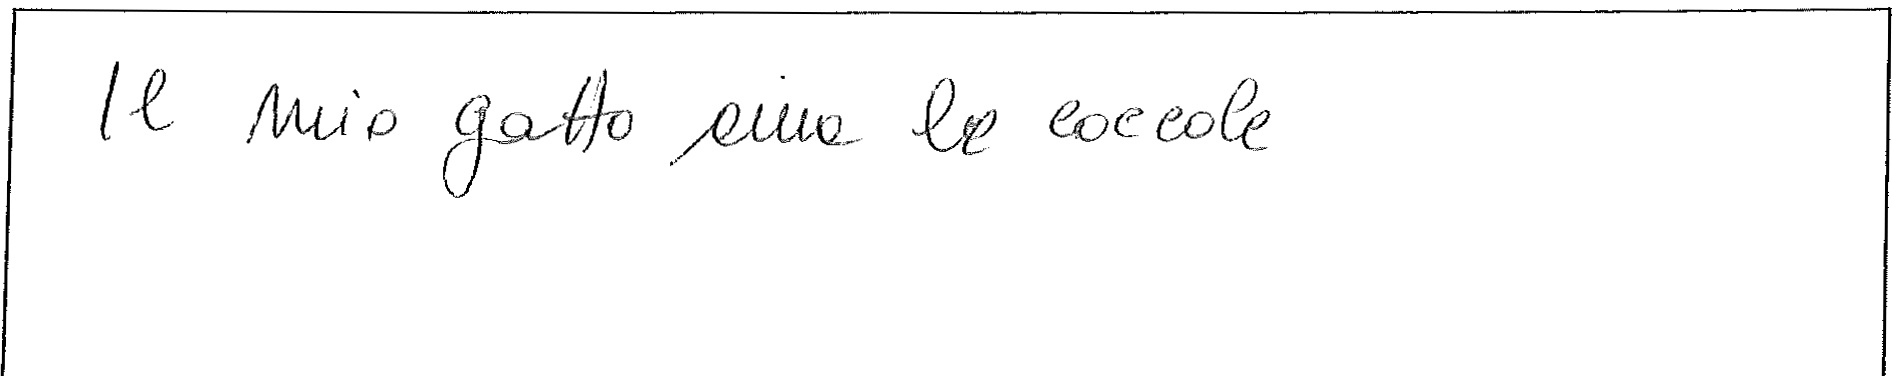 Il mio gatto ama le coccole